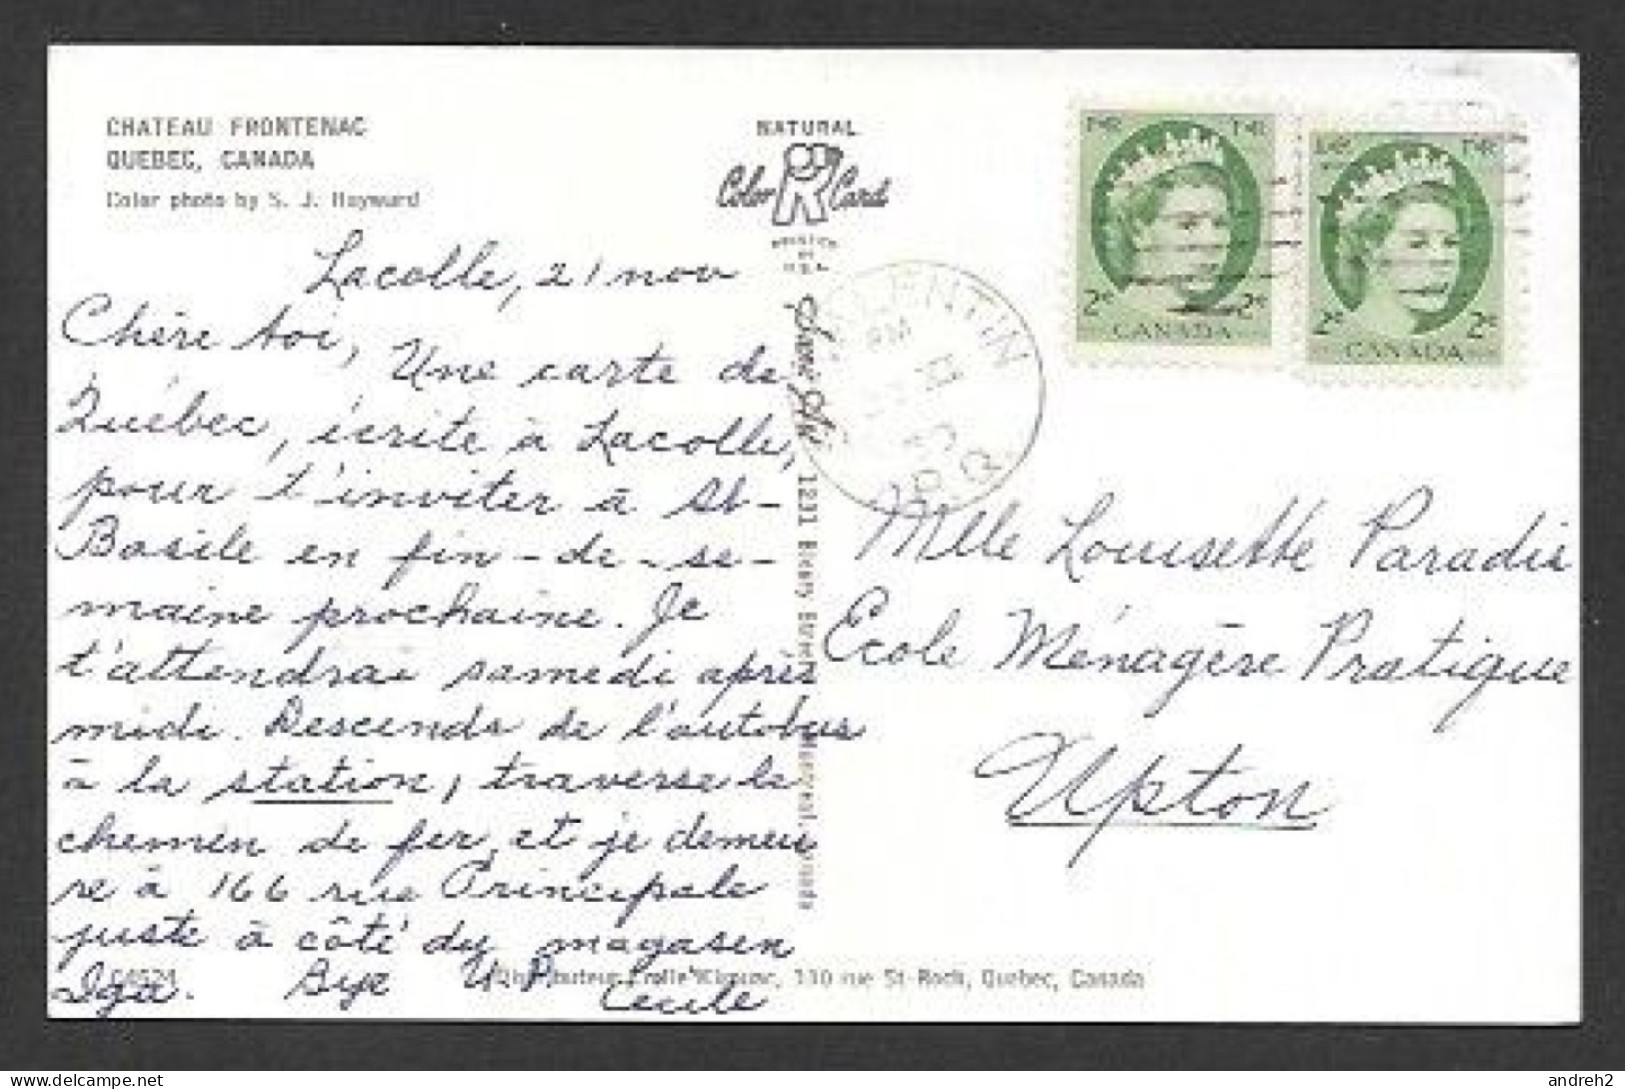 CHATEAU FRONTENAC
QUEBEC, CANADA
Color photo by S. J. Hayward
NATURAL
Color Card
CANADA
2¢ 2¢
CANADA
2¢ 2¢
LENTIN
PM
P.Q.
Lacolle, 21 nov
Chère toi, Une carte de
Québec, écrite à Lacolle,
pour t'inviter à St-
Basile en fin-de-se-
maine prochaine. Je
t'attendrai samedi après
midi. Descends de l'autobus
à la station, traverse le
chemin de fer, et je demeu
re à 166 rue Principale
juste à côté du magasin
Iga. Bye U.P. Cecile
Mlle Louisette Paradis
Ecole Ménagère Pratique
Upton
1231 Street Montreal, Canada
130 rue St-Roch, Quebec, Canada
andreh2